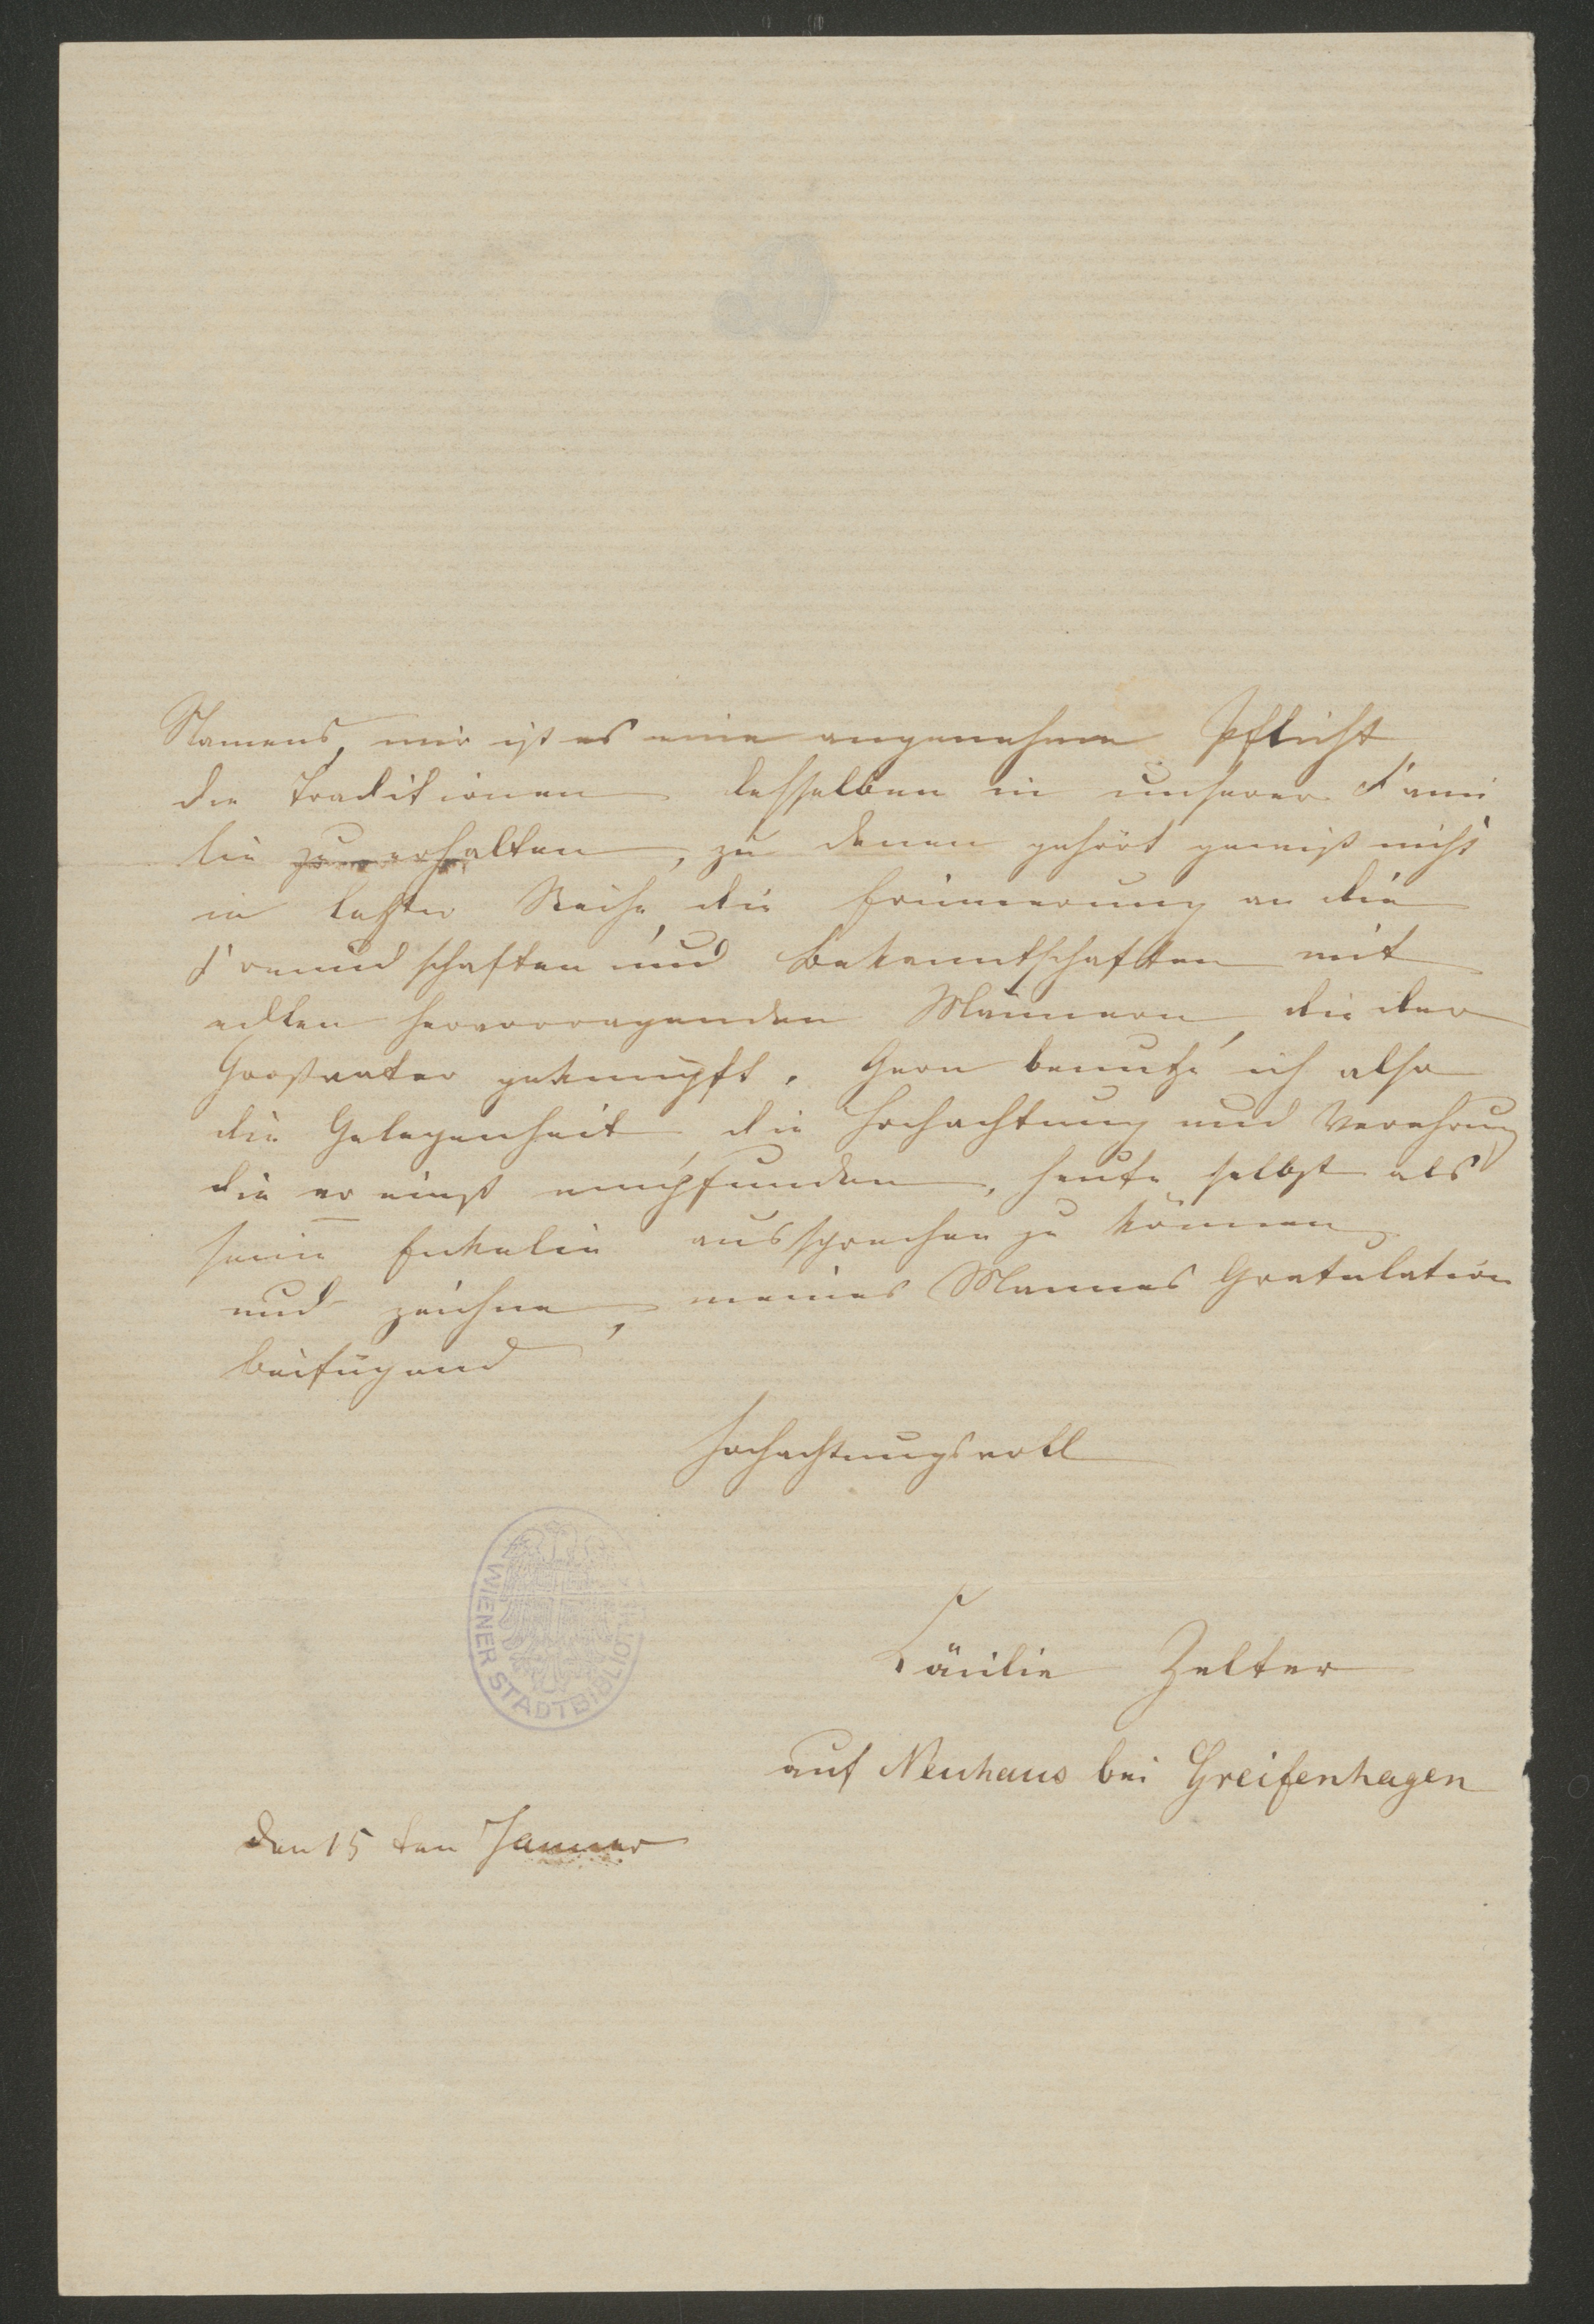 Namens, mir ist es eine angenehme Pflicht
die Traditionen desselben in unserer Fami
lie zu erhalten, zu denen gehört gewiß nicht
in letzter Reihe, die Erinnerung an die
Freundschaften und Bekanntschaften mit
edlen hervorragenden Männern, die der
Großvater geknüpft. Gern benutze ich also
die Gelegenheit die Hochachtung und Verehrung
die er einst empfunden, heute selbst als
seine Enkelin aussprechen zu können
und zeichne, meines Mannes Gratulation
beifügend
Hochachtungsvoll
WIENER STADTBIBLIOTHEK
Cäcilie Zelter
auf Neuhaus bei Greifenhagen
den 15ten Januar